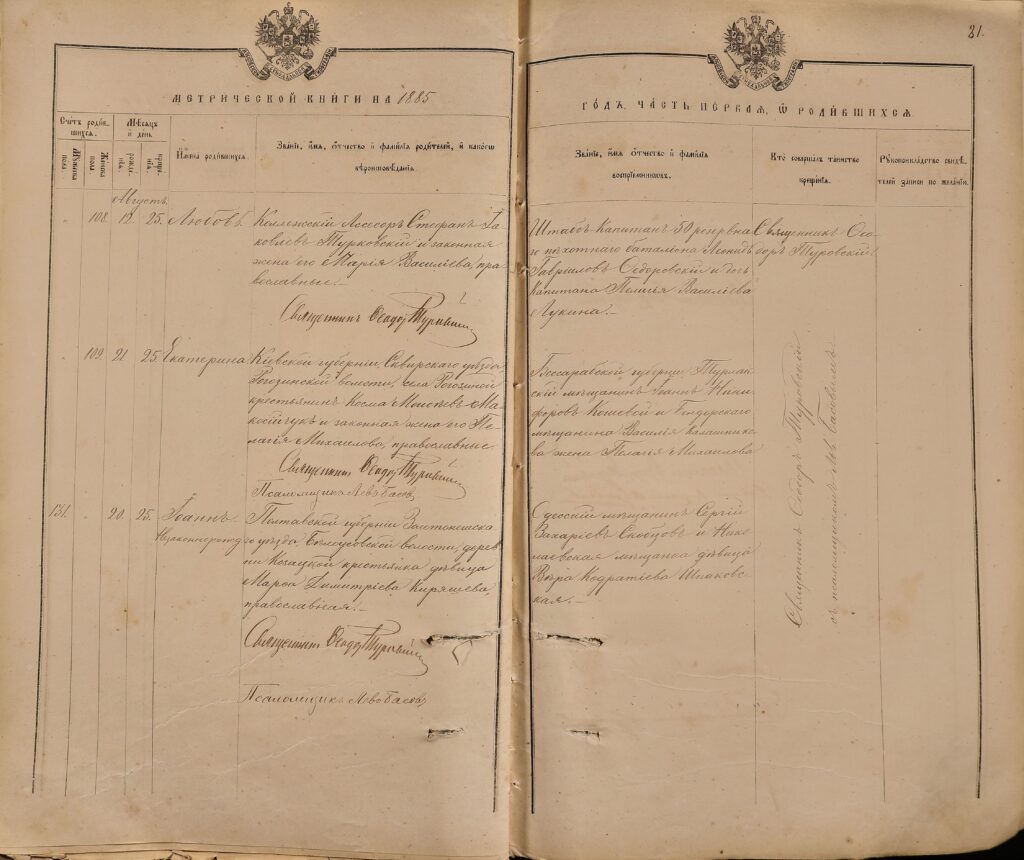 81.
МЕТРИЧЕСКОЙ КНИГИ НА 1885
ГОДЪ, ЧАСТЬ ПЕРВАЯ, Ѡ РОДИВШИХСЯ
Счетъ родив-
шихся.
Мужеска
пола
Женска
пола
Мѣсяцъ
и день
рожде-
нія.
креще-
нія.
Имена родившихся.
Званіе, имя, отчество и фамилія родителей, и какого
вѣроисповѣданія.
Званіе, имя отчество и фамилія
воспріемниковъ.
Кто совершалъ таинство
крещенія.
Рукоприкладство свидѣ-
телей записи по желанію.
Августъ
108. 12. 25. Любовь.
Коллежскій Ассесоръ Стефанъ Я-
ковлевъ Турковскій и законная
жена его Марія Василіева, пра-
вославные.-
Священникъ Ѳеодоръ Туровскій
Штабсъ Капитанъ 59 резервна-
го пѣхотнаго баталіона Леонидъ
Гавриловъ Ѳедоровскій и дочь
Капитана Пелагія Василіева
Лукина.-
Священникъ Ѳео-
доръ Туровскій
109. 21 25. Екатерина
Кіевской губерніи, Сквирскаго уѣзда
волости, села
крестьянинъ Косма Моисѣевъ Ма-
и законная жена его Пе-
лагія Михаилова, православные
Священникъ Ѳеодоръ Туровскій
Псаломщикъ Левъ Басовъ
Бессарабской губерніи
мѣщанинъ Іоаннъ Ники-
форовъ Кошевой и Бендерскаго
мѣщанина Василія Калашнико-
ва жена Пелагія Михаилова
131. 20. 25. Іоаннъ
Незаконнорожд.
Полтавской губерніи
го уѣзда, Бѣлоусовской волости, дерев-
ни Козацкой крестьянка дѣвица
Марѳа Димитріева Киряшева,
православная.-
Священникъ Ѳеодоръ Туровскій
Псаломщикъ Левъ Басовъ
Одесскій мѣщанинъ Сергій
Захаріевъ Скобцовъ и Нико-
лаевская мѣщанка дѣвица
Вѣра Кодратіева Шпаковс-
кая.-
Священникъ Ѳеодоръ Туровскій
съ псаломщикомъ Львомъ Басовымъ